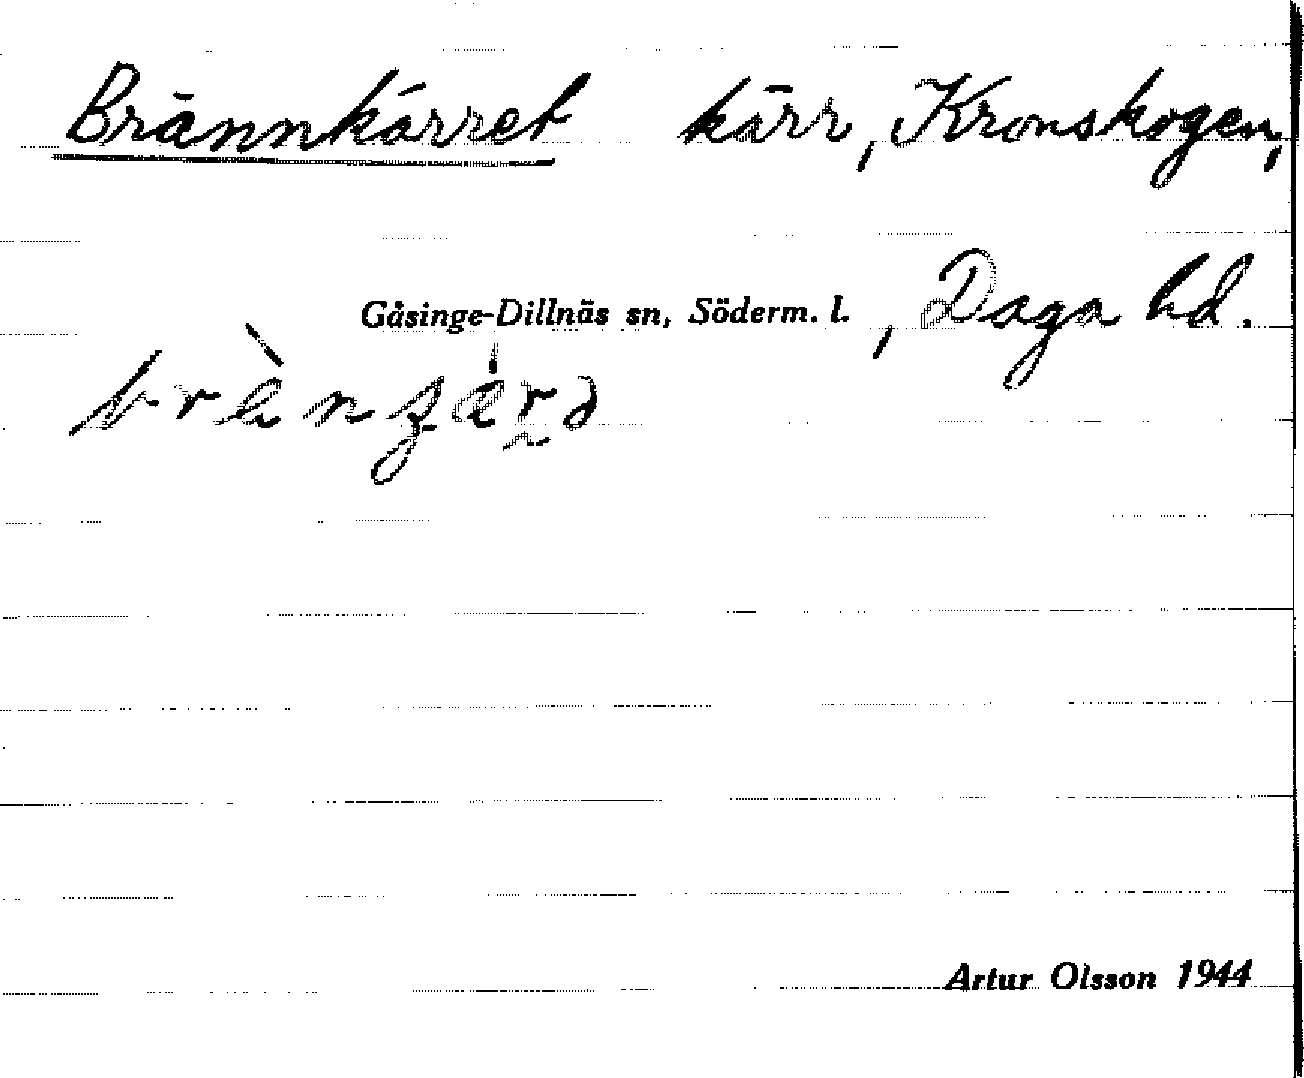 Brännkärret kärr, Kronskogen,
Gåsinge-Dillnäs sn, Söderm. l., Daga hd.
Artur Olsson 1944